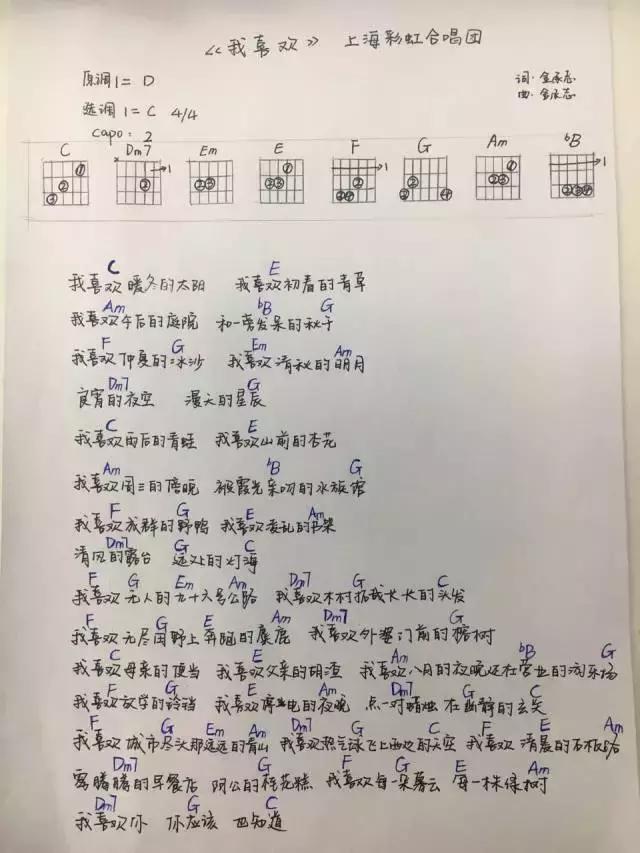 《我喜欢》 上海彩虹合唱团
原调 1= D
词:金承志
曲:金承志
选调 1= C 4/4
capo: 2
C Dm7 Em E F G Am bB
C E
我喜欢暖冬的太阳 我喜欢初春的青草
Am bB G
我喜欢午后的庭院 和一旁发呆的秋千
F G Em Am
我喜欢仲夏的冰沙 我喜欢清秋的明月
Dm7 G
良宵的夜空 漫天的星辰
C E
我喜欢雨后的青蛙 我喜欢山前的杏花
Am bB G
我喜欢周三的傍晚 被霞光亲吻的水族馆
F G E Am
我喜欢成群的野鸭 我喜欢凌乱的书架
Dm7 G C
清风的露台 远处的灯海
F G Em Am Dm7 G C
我喜欢无人的九十六号公路 我喜欢木村拓哉长长的头发
F G E Am Dm7 G
我喜欢无尽田野上奔跑的麋鹿 我喜欢外婆门前的榕树
C E Am bB G
我喜欢母亲的顶当 我喜欢父亲的胡渣 我喜欢八月的夜晚还在营业的游乐场
F G E Am Dm7 G C
我喜欢放学的铃铛 我喜欢停电的夜晚 点一对蜡烛 在幽静的玄关
F G E Am Dm7 G C F E Am
我喜欢城市尽头那远远的青山 我喜欢热气球飞上西边的天空 我喜欢清晨的石板路
Dm7 G C F G E Am
雾腾腾的早餐店 阿公的桂花糕 我喜欢每一朵暮云 每一株绿树
Dm7 G C
我喜欢你 你应该 也知道